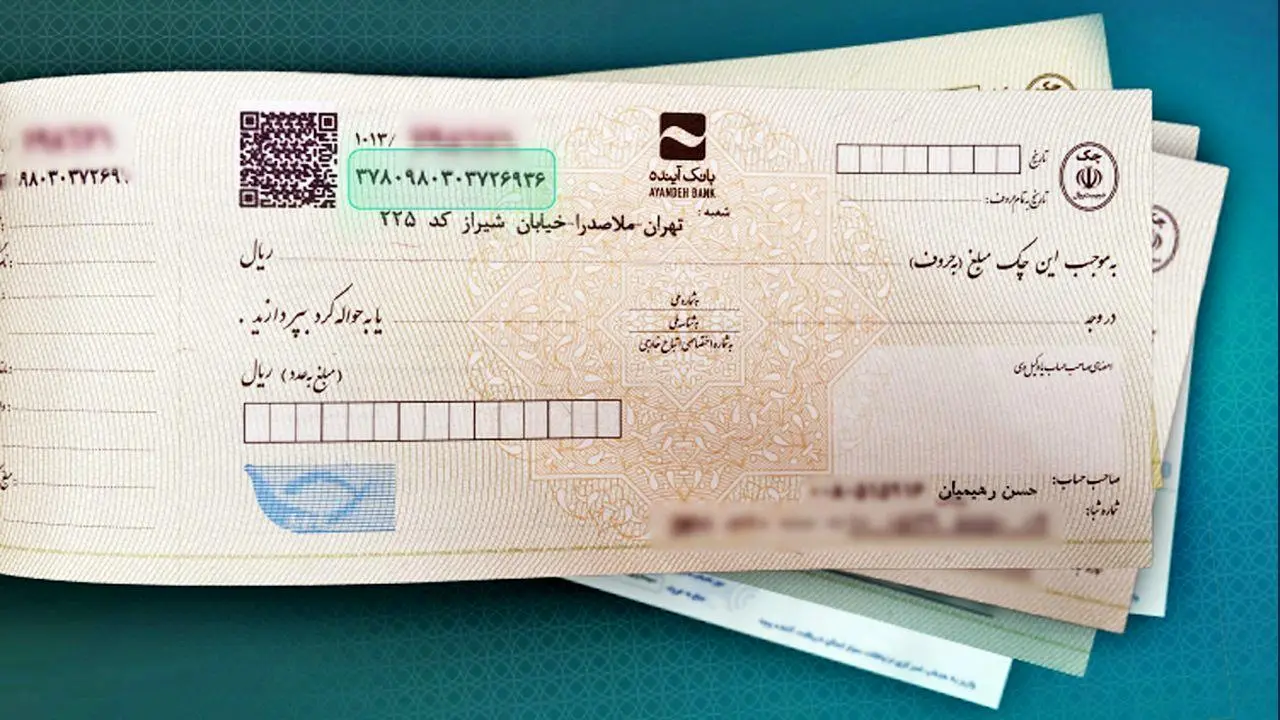 ۱۰۱۳/
۳۷۸۰۹۸۰۳۰۳۷۲۶۹۳۶
۹۸۰۳۰۳۷۲۶۹۰
بانک آینده
AYANDEH BANK
چک
تاریخ
تاریخ به تمام حروف:
شعبه:
تهران-ملاصدرا-خیابان شیراز کد ۲۲۵
به موجب این چک مبلغ (به حروف) ریال
در وجه
به شماره ملی
به شناسه ملی
به شماره اختصاصی اتباع خارجی
یا به حواله کرد بپردازند.
(مبلغ به عدد) ریال
امضای صاحب حساب یا وکیل وی
صاحب حساب: حسن رهیمیان
شماره شبا: